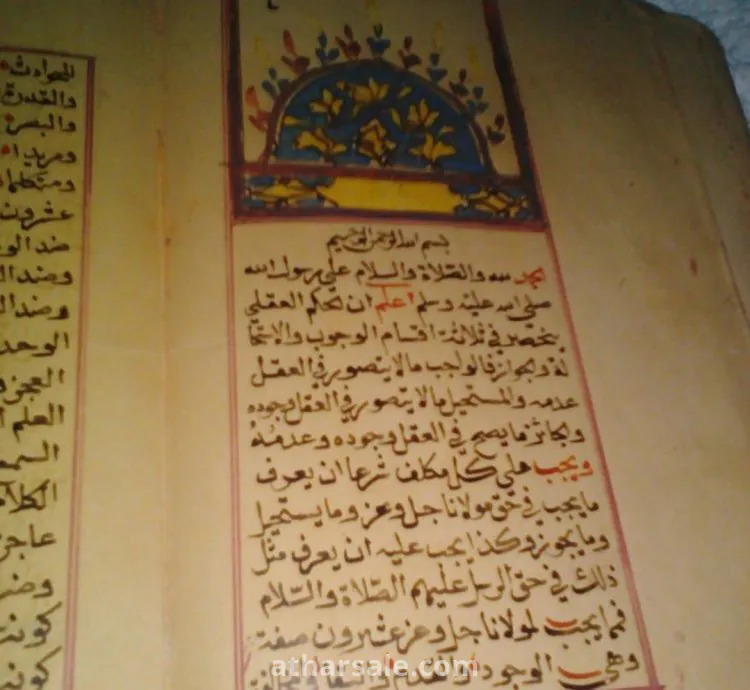 بسم الله الرحمن الرحيم
الحمد لله والصلاة والسلام على رسول الله
صلى الله عليه وسلم اعلم ان الحكم العقلي
ينحصر في ثلاثة اقسام الوجوب والاستحا
لة والجواز فالواجب ما لا يتصور في العقل
عدمه والمستحيل ما لا يتصور في العقل وجوده
والجائز ما يصح في العقل وجوده وعدمه
ويجب على كل مكلف شرعا ان يعرف
ما يجب في حق مولانا جل وعز وما يستحيل
وما يجوز وكذا يجب عليه ان يعرف مثل
ذلك في حق الرسل عليهم الصلاة والسلام
فمما يجب لمولانا جل وعز عشرون صفة
وهي الوجود والقدم والبقا
الحوادث
والقدرة
والبصر
ومريدا
ومتكلما
عشرون
ضد الو
وضد
وضد
الوحد
العجز
العلم
السمع
الكلام
عاجز
وضد
كونه
كونه
atharsale.com